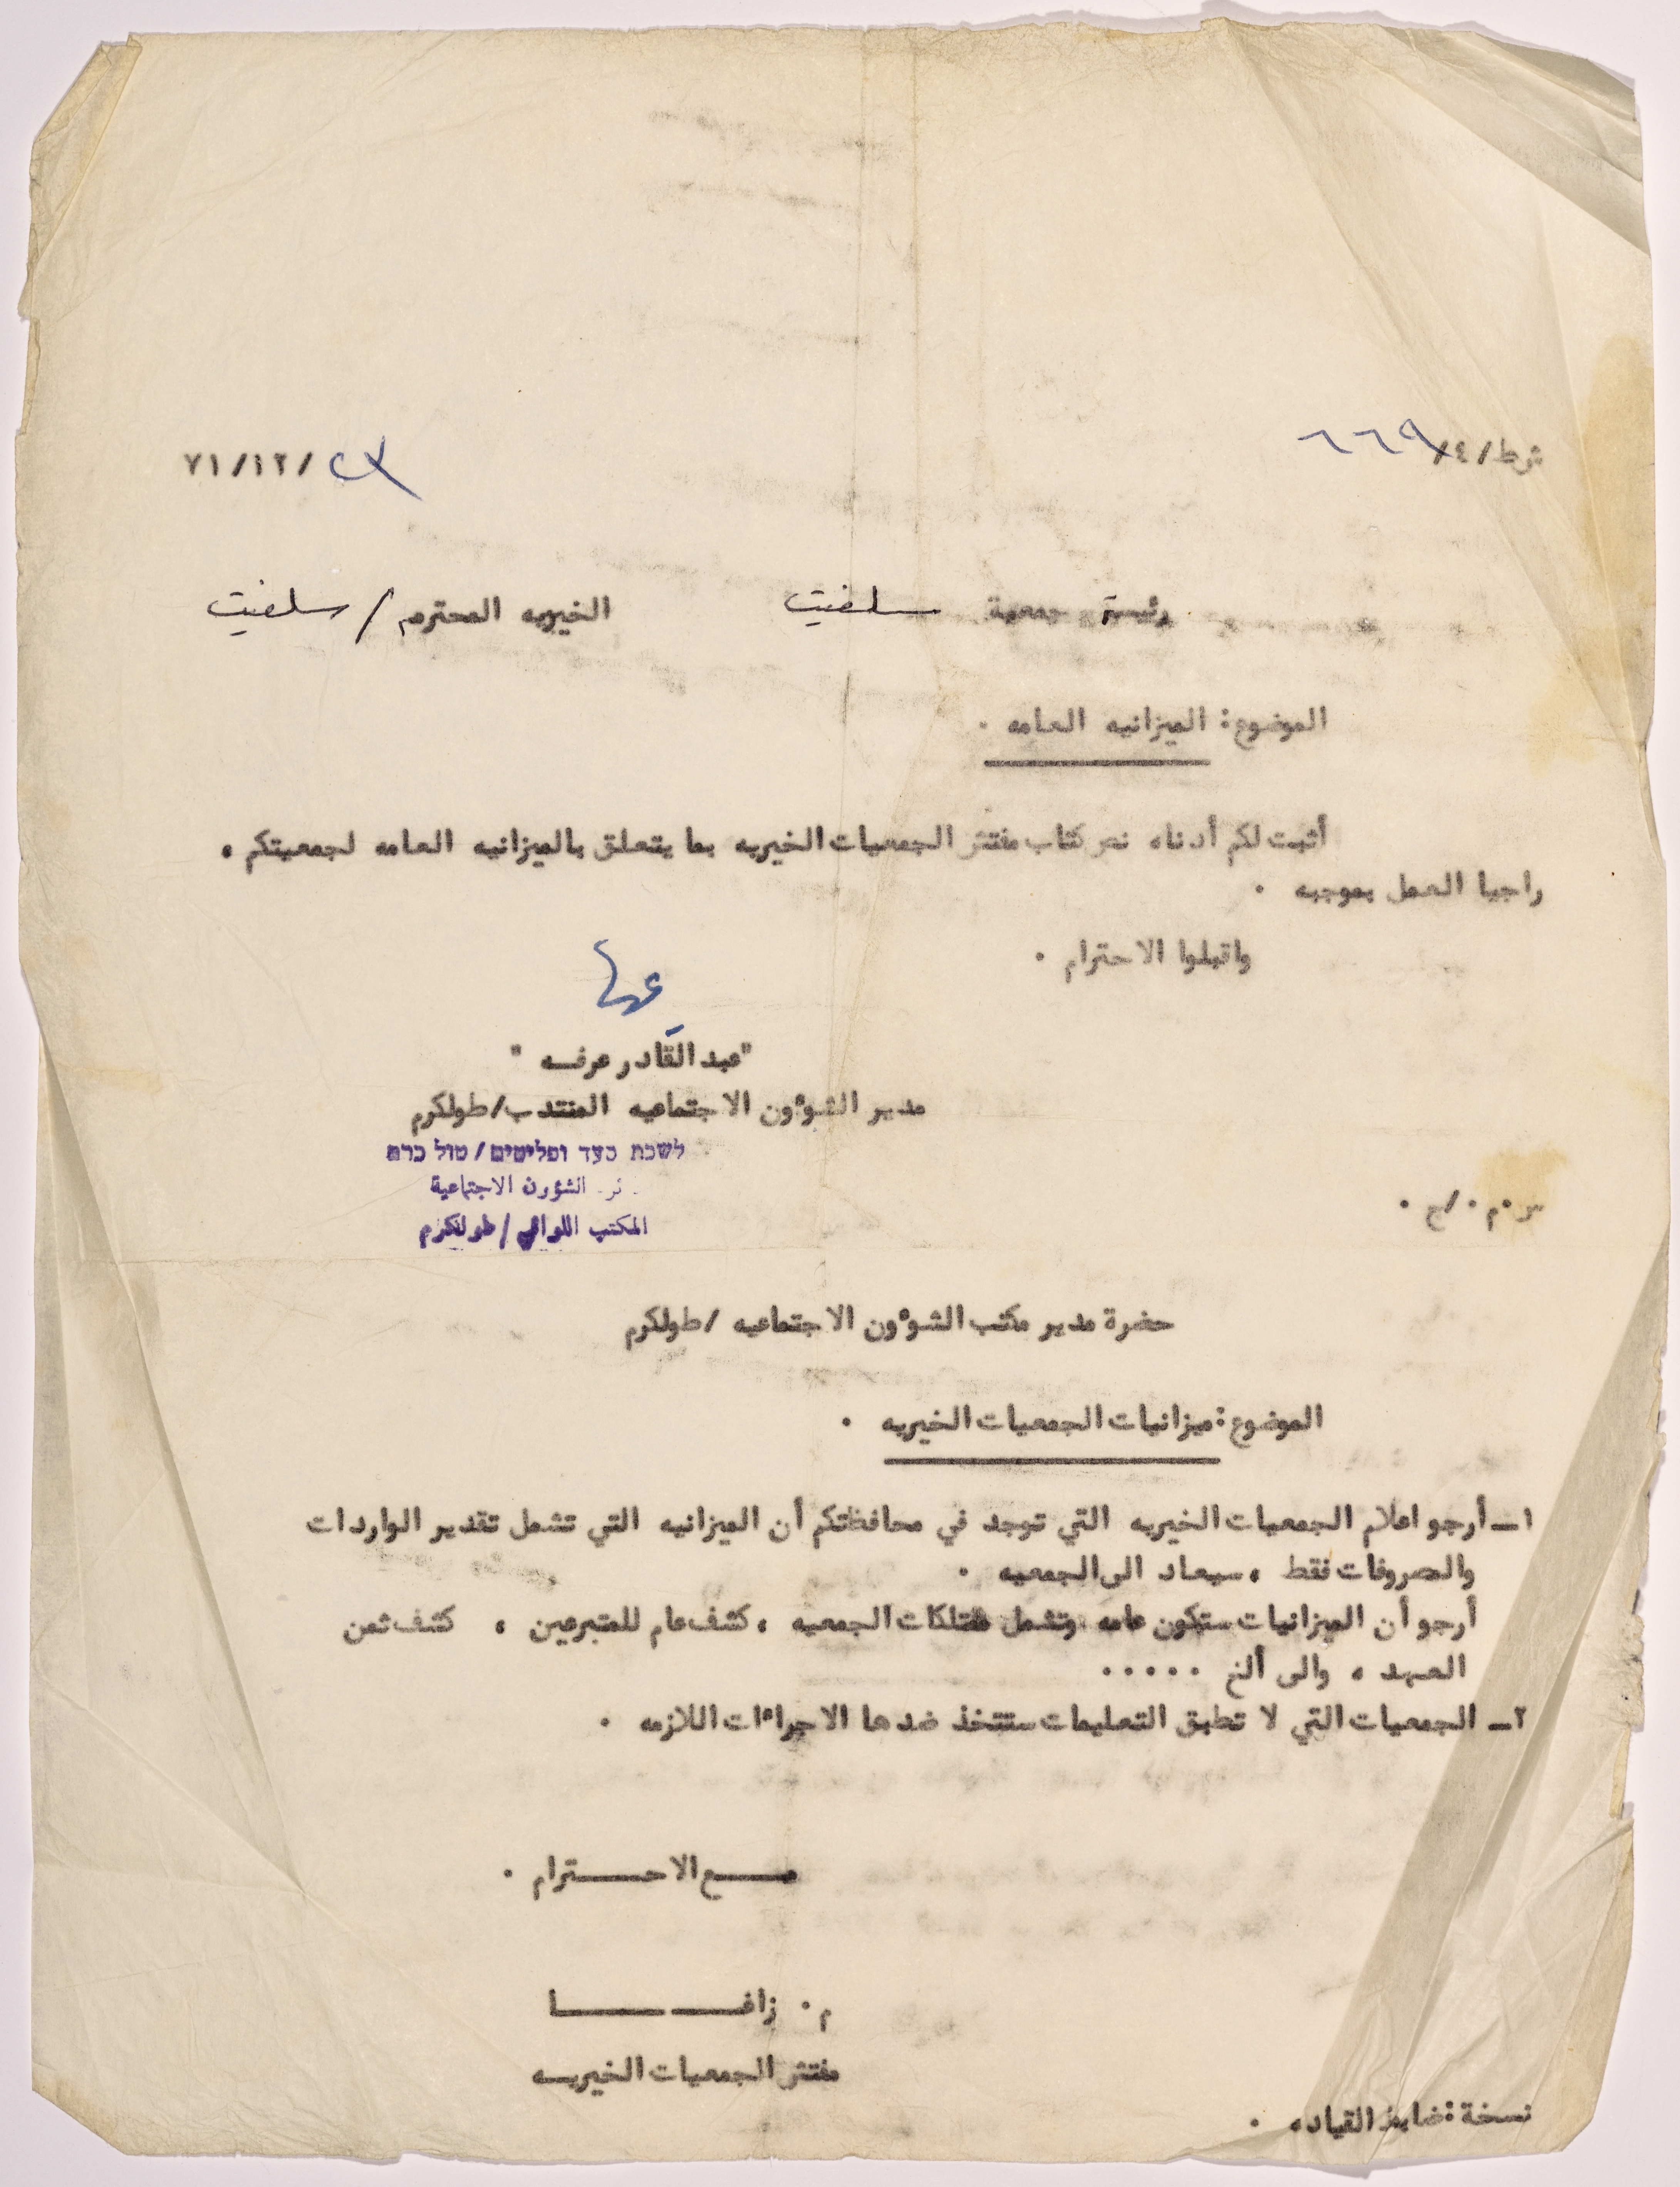 شرط/٤/٦٦٩
٧١/١٢/٢٨
رئيسة جمعية سلفيت الخيريه المحترم / سلفيت
الموضوع: الميزانيه العامه .
أثبت لكم أدناه نص كتاب مفتش الجمعيات الخيريه بما يتعلق بالميزانيه العامه لجمعيتكم ،
راجيا العمل بموجبه .
واقبلوا الاحترام .
"عبد القادر عرفه "
مدير الشوءون الاجتماعيه المنتدب/طولكرم
לשכת סעד ופליטים/טול כרם
الشؤون الاجتماعية
المكتب اللوائي/طولكرم
س.م./ح .
حضرة مدير مكتب الشوءون الاجتماعيه /طولكرم
الموضوع: ميزانيات الجمعيات الخيريه .
١ــ أرجو اعلام الجمعيات الخيريه التي توجد في محافظتكم أن الميزانيه التي تشمل تقدير الواردات
والصروفات فقط ، سيعاد الى الجمعيه .
أرجو أن الميزانيات ستكون عامه وتشمل ممتلكات الجمعيه ، كشف عام للمتبرعين ، كشف ثمن
العهد ، والى ألخ .....
٢ــ الجمعيات التي لا تطبق التعليمات ستتخذ ضدها الاجراءات اللازمه .
مـــع الاحـــترام .
م . زاغـــــا
مفتش الجمعيات الخيريــه
نسخة: ضابط القياده .